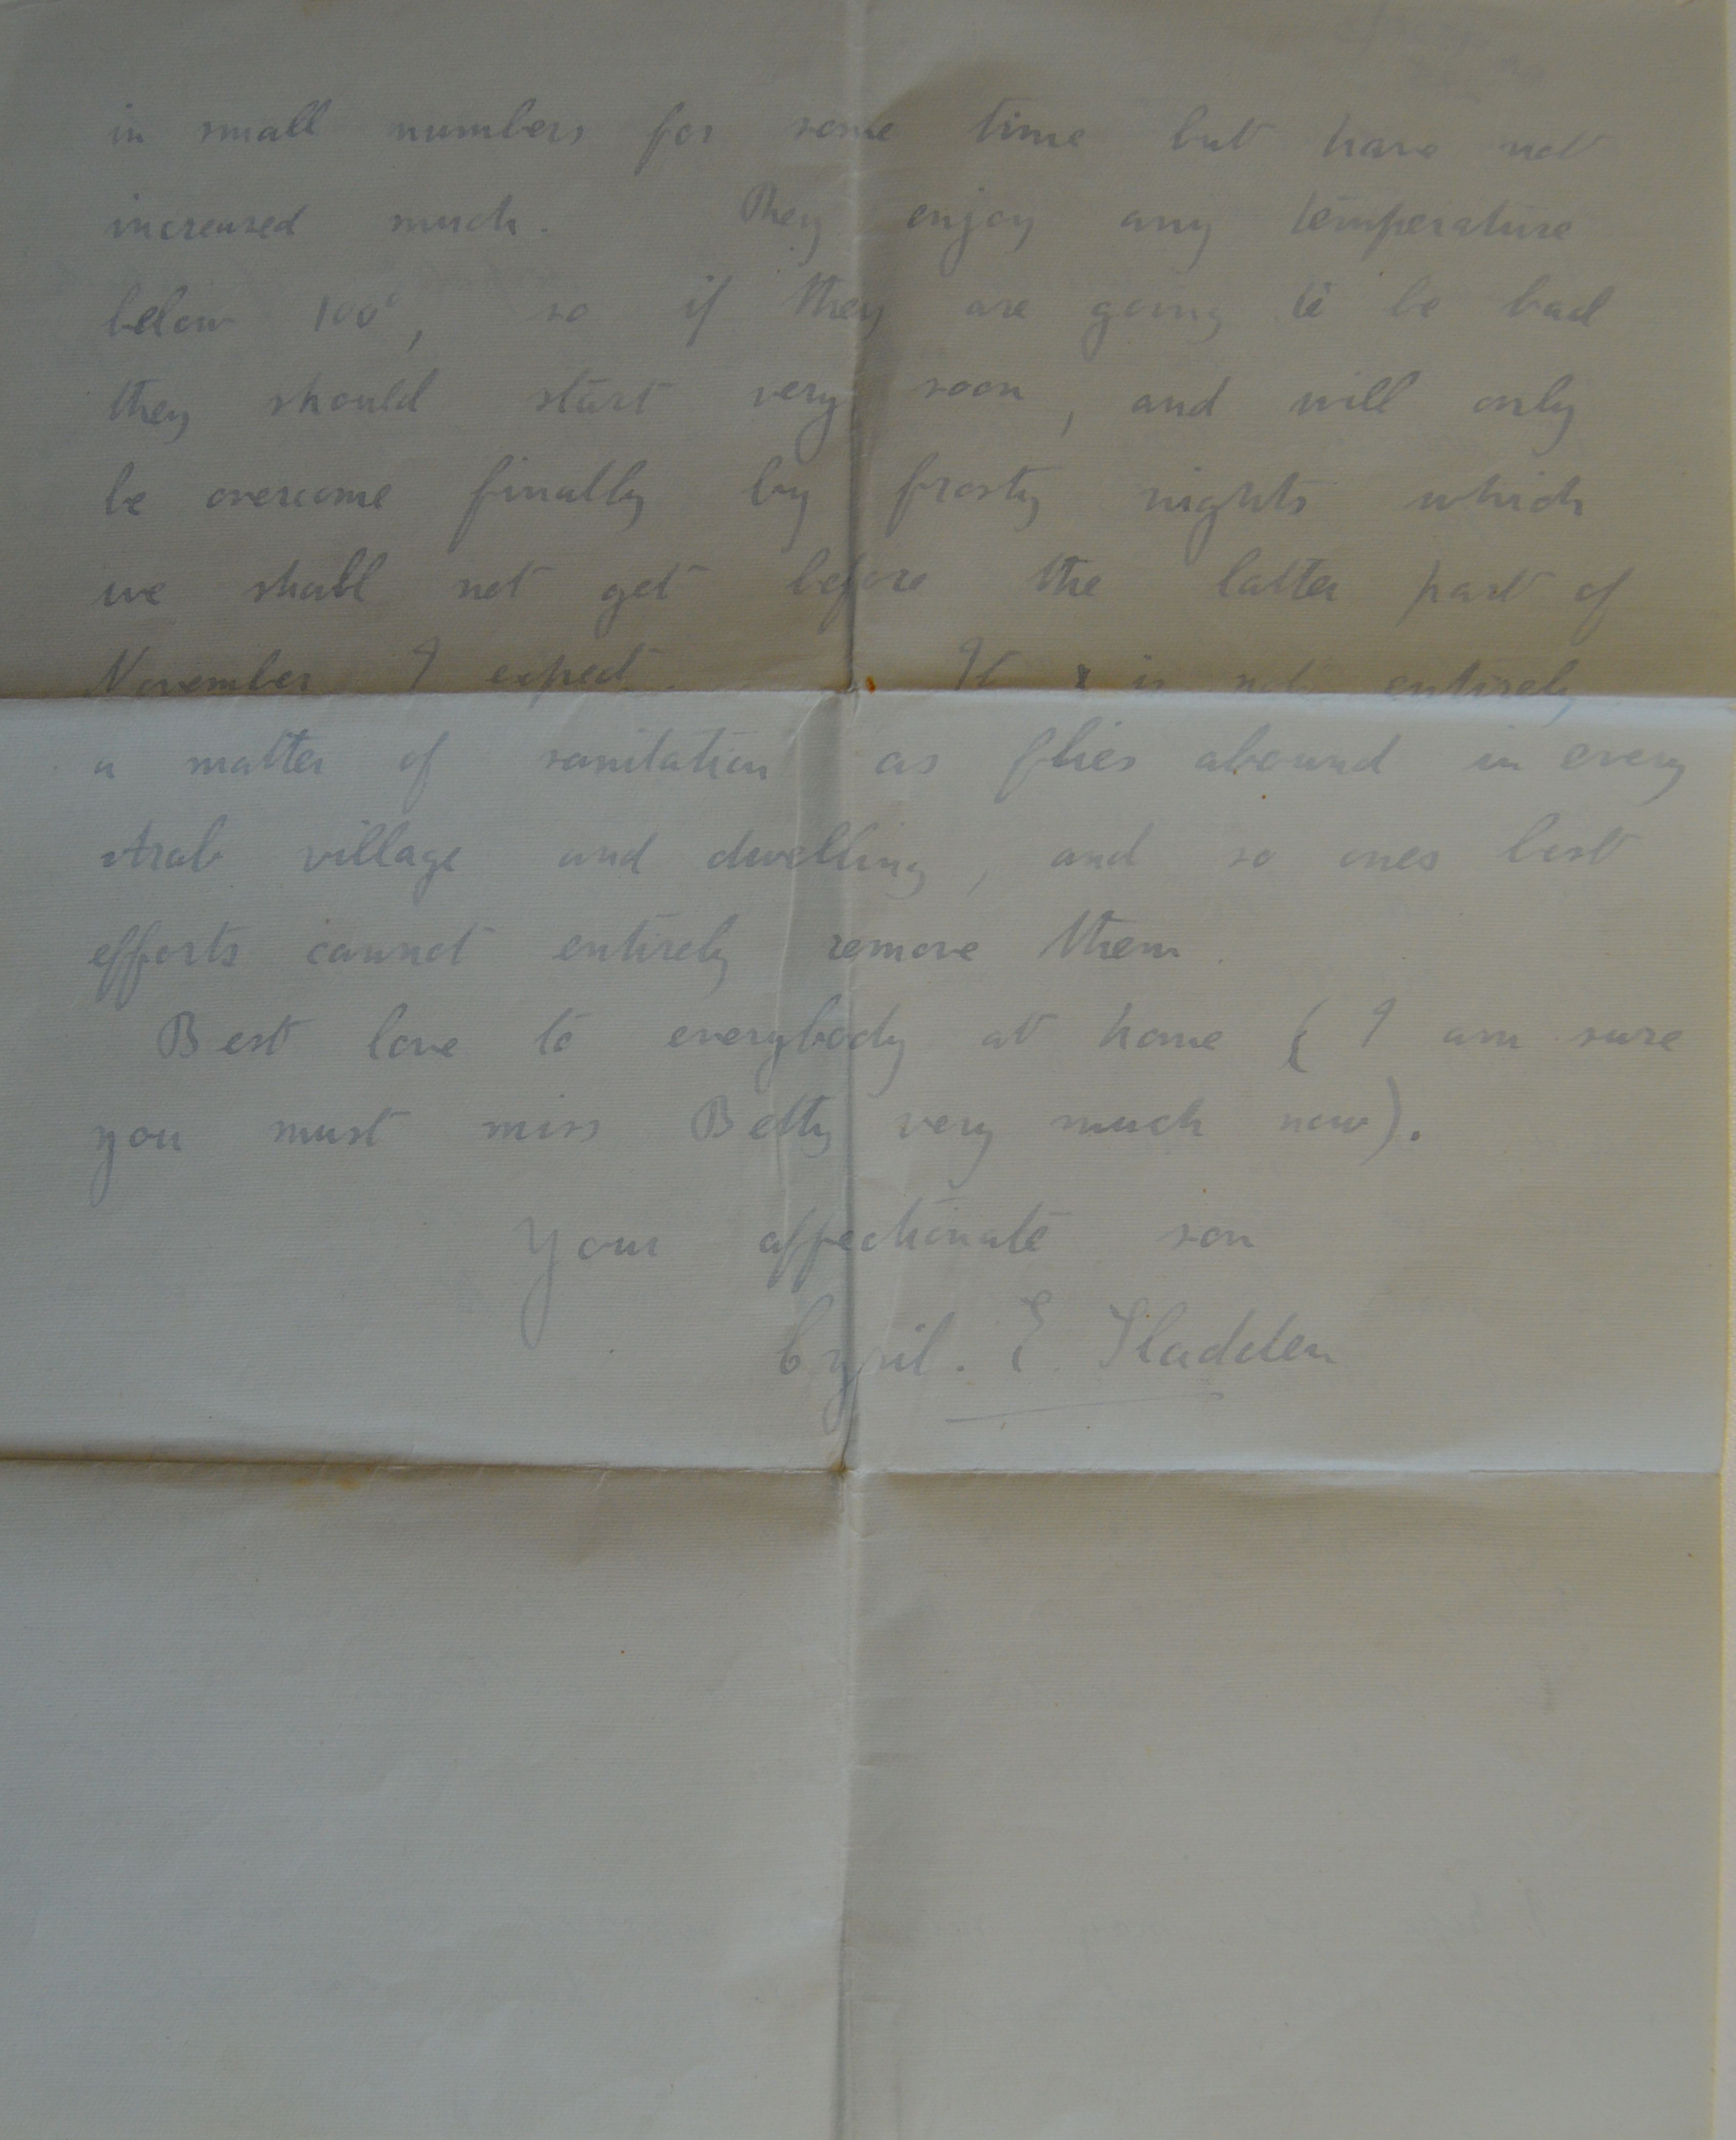 in small numbers for some time but have not
increased much. They enjoy any temperature
below 100°, so if they are going to be bad
they should start very soon, and will only
be overcome finally by frosty nights which
we shall not get before the latter part of
November I expect. It is not entirely
a matter of sanitation as flies abound in every
Arab village and dwelling, and so ones best
efforts cannot entirely remove them.
Best love to everybody at home ( I am sure
you must miss Betty very much now).
Your affectionate son
Cyril. E. Sladden